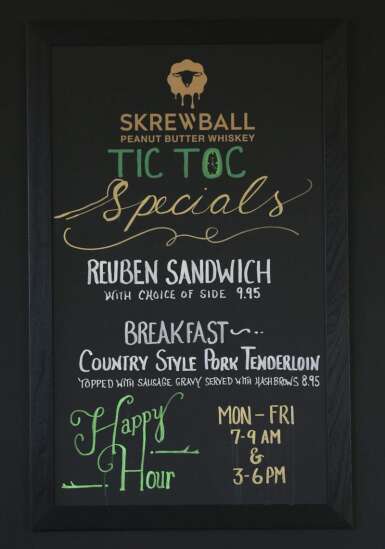 SKREWBALL
PEANUT BUTTER WHISKEY
TIC TOC
Specials
REUBEN SANDWICH
WITH CHOICE OF SIDE 9.95
BREAKFAST
COUNTRY STYLE PORK TENDERLOIN
TOPPED WITH SAUSAGE GRAVY SERVED WITH HASHBROWS 8.95
Happy
Hour
MON-FRI
7-9 AM
&
3-6 PM